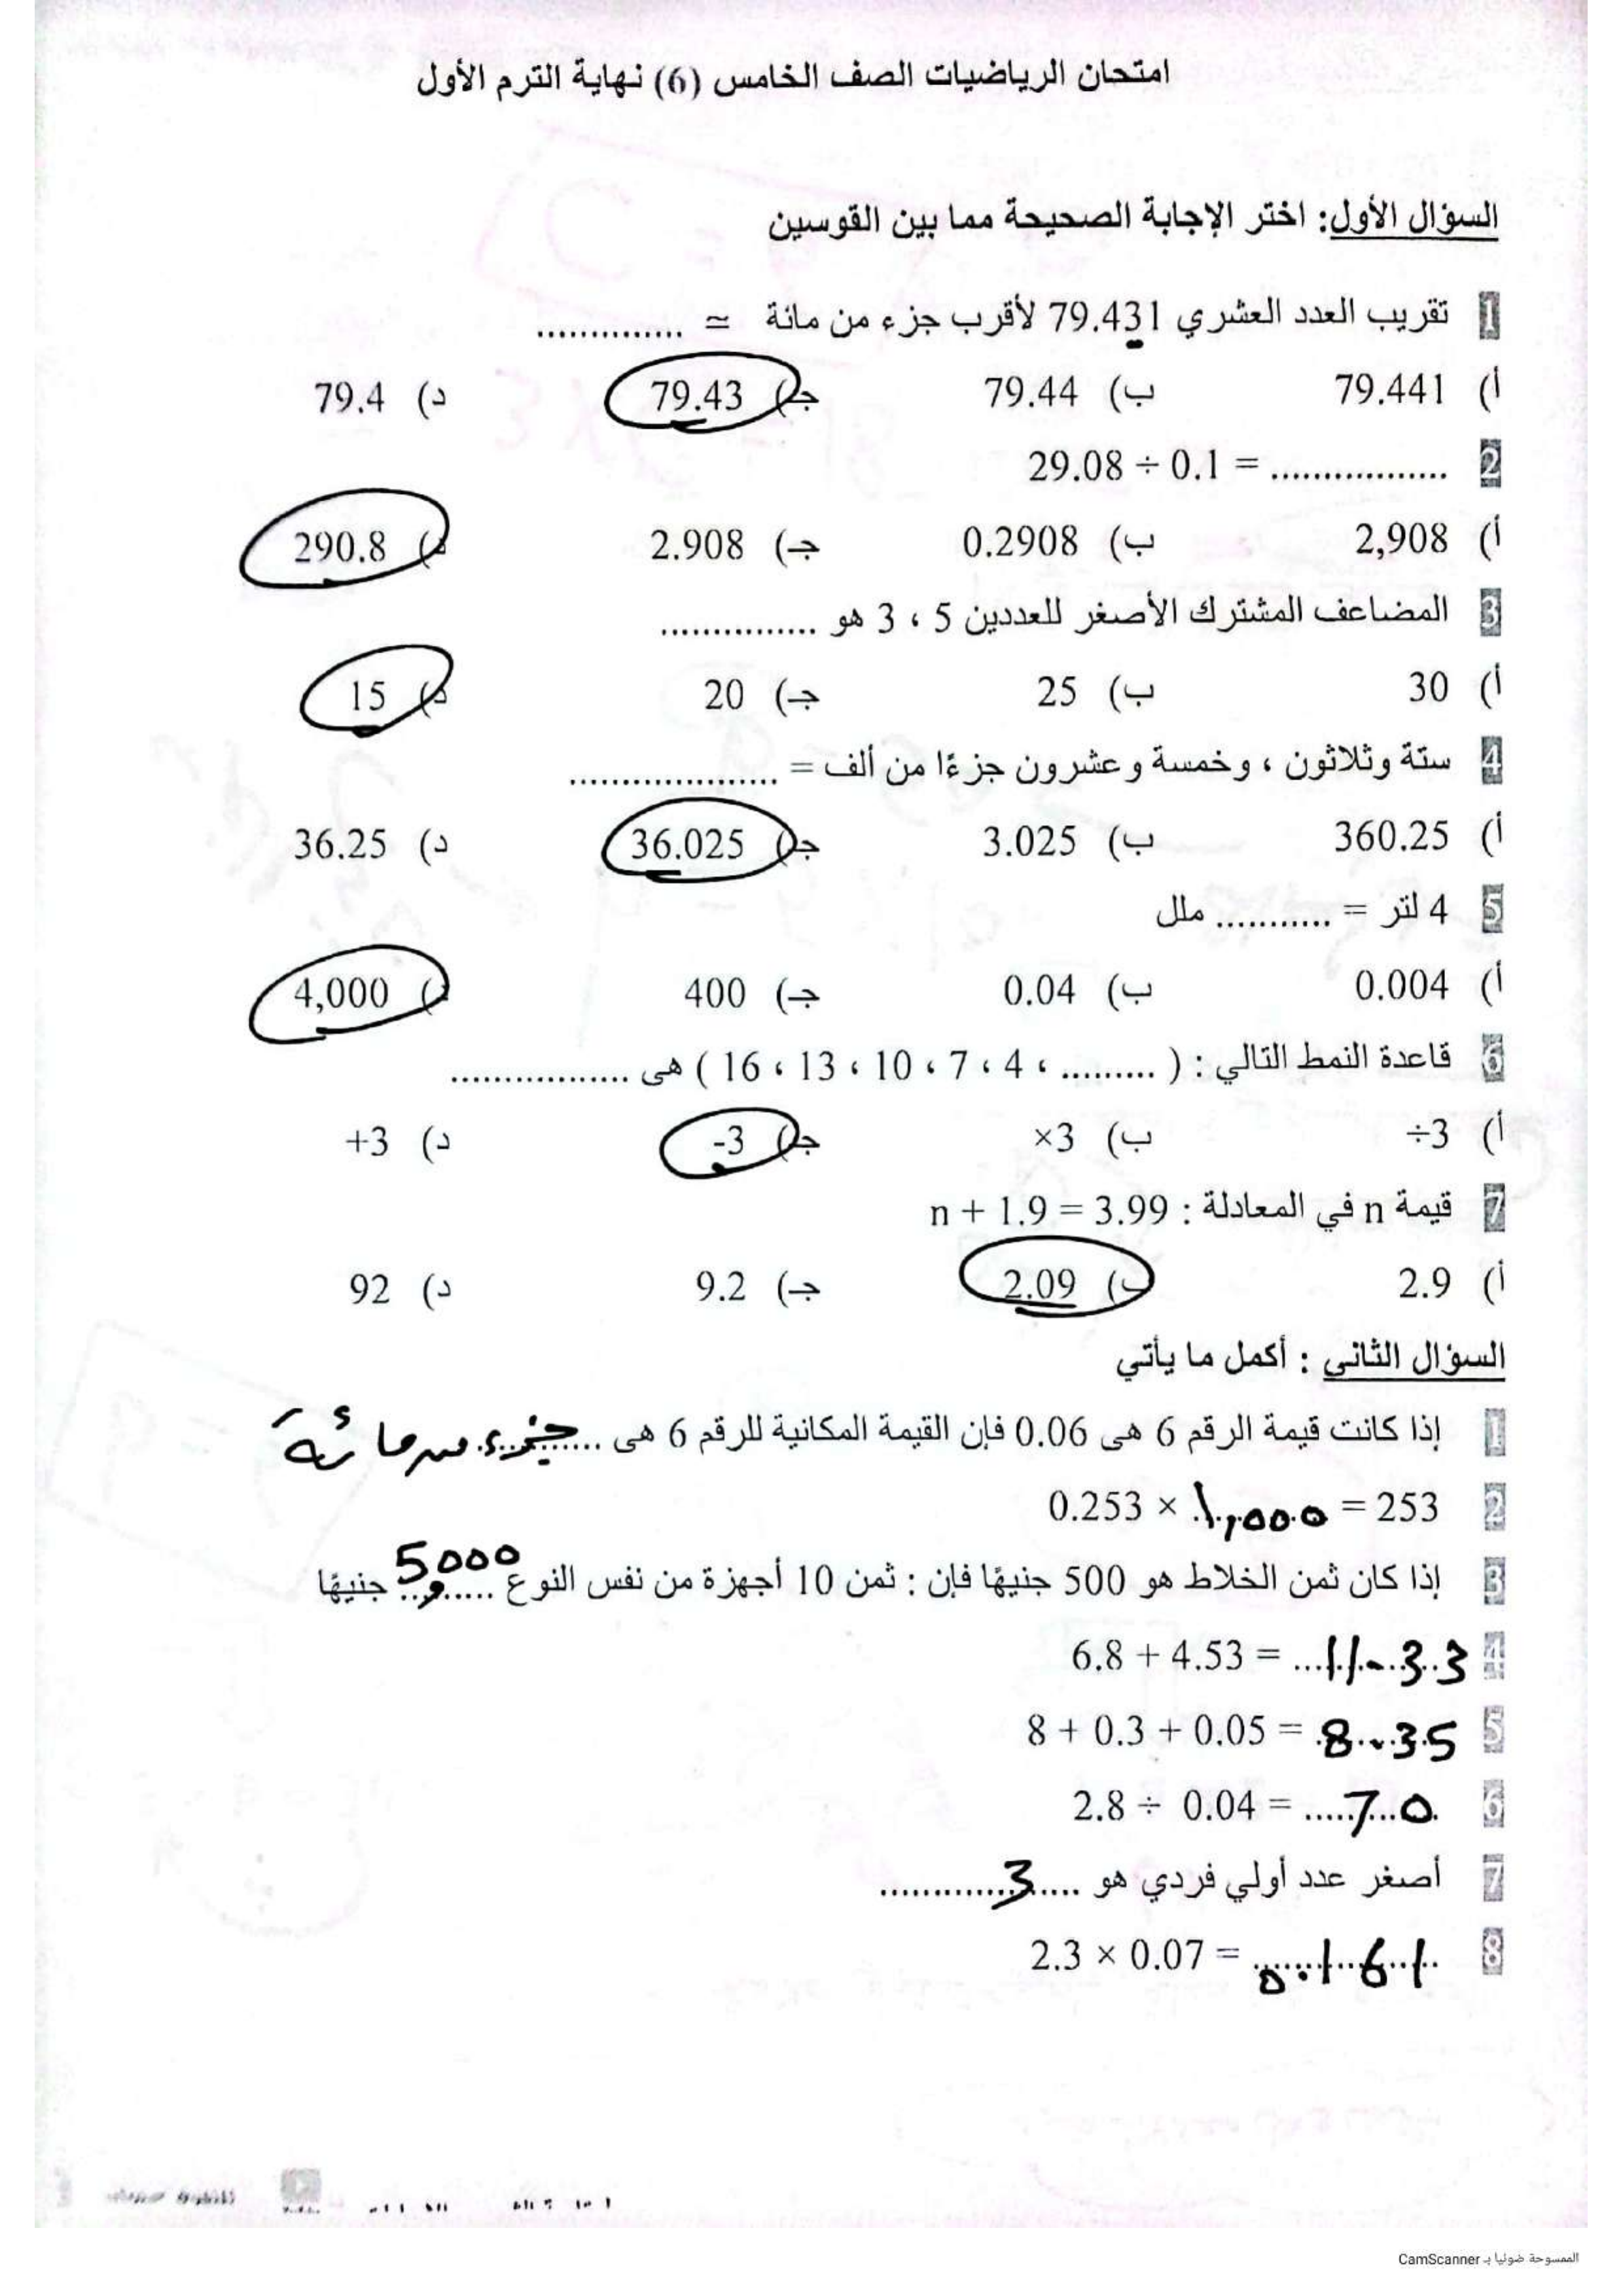 امتحان الرياضيات الصف الخامس (6) نهاية الترم الأول
السؤال الأول: اختر الإجابة الصحيحة مما بين القوسين
1 تقريب العدد العشري 79.431 لأقرب جزء من مائة ≃ ..............
أ) 79.441 ب) 79.44 جـ) 79.43 د) 79.4
2 29.08 ÷ 0.1 = .................
أ) 2,908 ب) 0.2908 جـ) 2.908 د) 290.8
3 المضاعف المشترك الأصغر للعددين 5 ، 3 هو ...............
أ) 30 ب) 25 جـ) 20 د) 15
4 ستة وثلاثون ، وخمسة وعشرون جزءًا من ألف = ....................
أ) 360.25 ب) 3.025 جـ) 36.025 د) 36.25
5 4 لتر = ........... ملل
أ) 0.004 ب) 0.04 جـ) 400 د) 4,000
6 قاعدة النمط التالي : ( ......... ، 4 ، 7 ، 10 ، 13 ، 16 ) هى .................
أ) ÷3 ب) ×3 جـ) -3 د) +3
7 قيمة n في المعادلة : n + 1.9 = 3.99
أ) 2.9 ب) 2.09 جـ) 9.2 د) 92
السؤال الثاني : أكمل ما يأتي
1 إذا كانت قيمة الرقم 6 هى 0.06 فإن القيمة المكانية للرقم 6 هى جزء من مائة
2 0.253 × 1,000 = 253
3 إذا كان ثمن الخلاط هو 500 جنيهًا فإن : ثمن 10 أجهزة من نفس النوع 5,000 جنيهًا
4 6.8 + 4.53 = 11.33
5 8 + 0.3 + 0.05 = 8.35
6 2.8 ÷ 0.04 = 70
7 أصغر عدد أولي فردي هو 3
8 2.3 × 0.07 = 0.161
الممسوحة ضوئيا بـ CamScanner